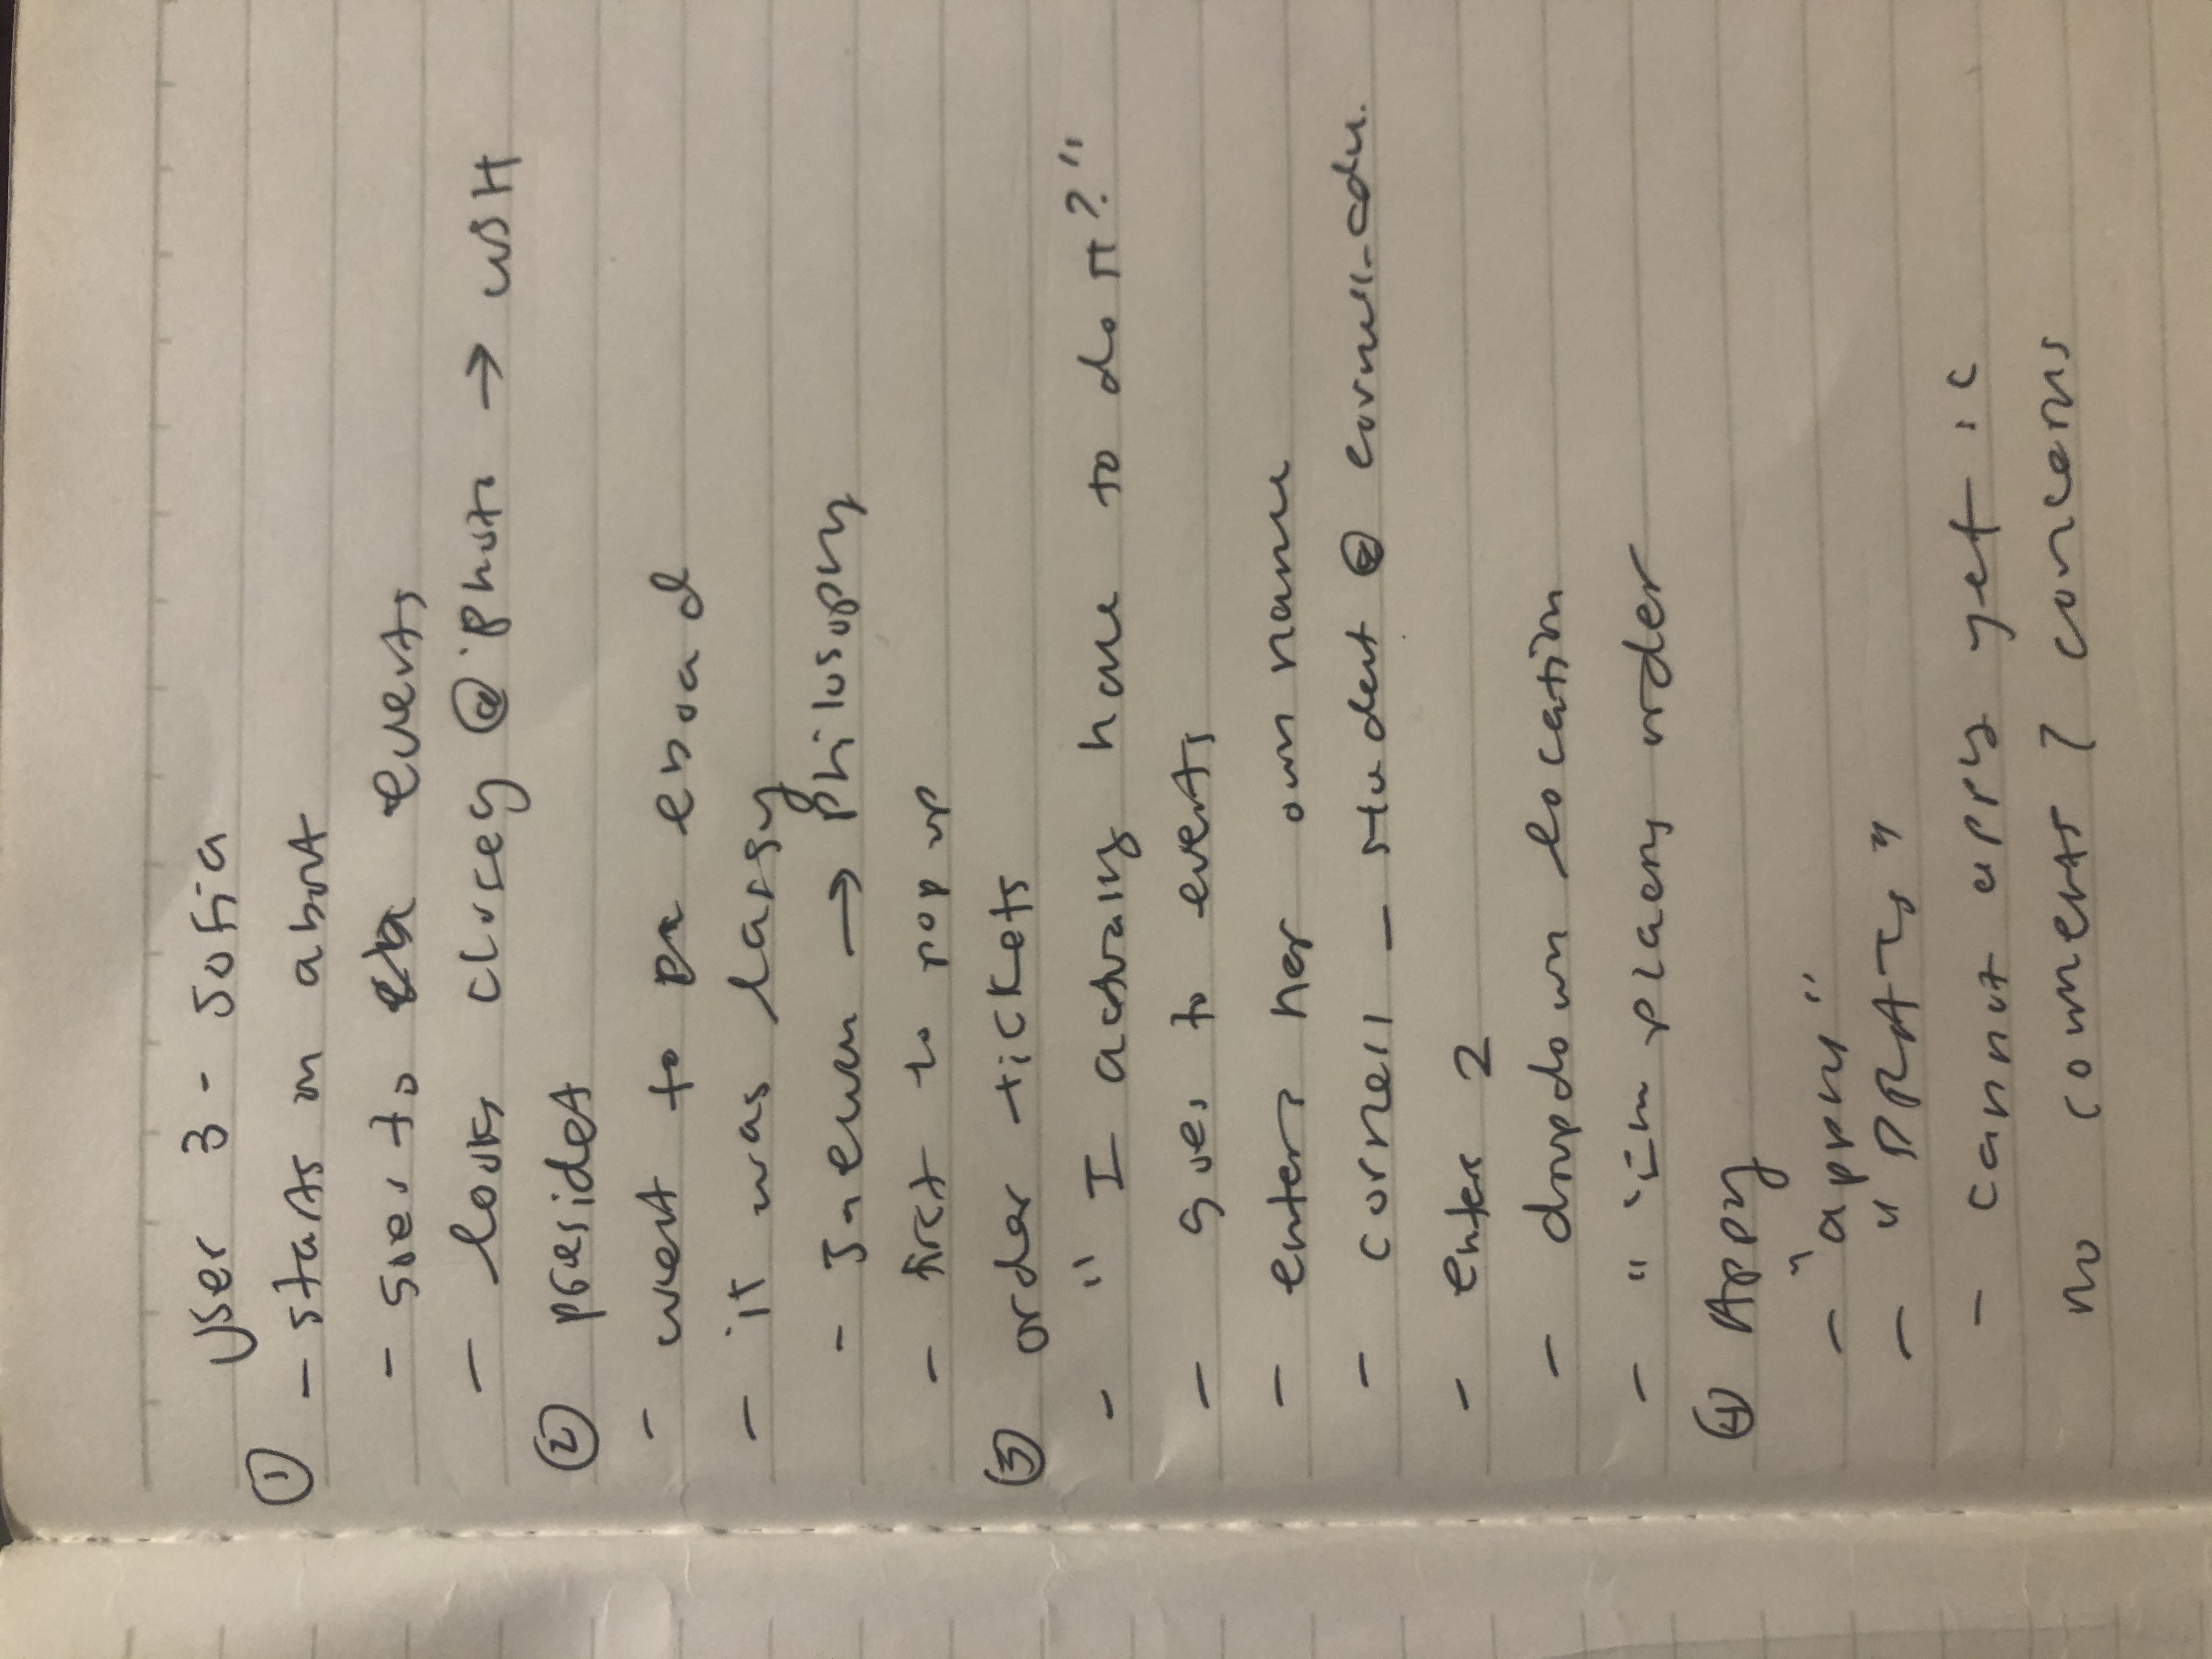 User 3 - Sofia
① - starts on about
- goes to events
- looks closey @ photo → WSH
② presidet
- went to eboad
- it was
- → Philosophy
- first to pop up
③ order tickets
- " I actually have to do it? "
- goes to events
- enters her own name
- cornell - student @ cornell.edu.
- enters 2
- dropdown location
- " I'm placing order
④ Appy
- "apply"
- " DRATS "
- cannot apply yet :C
no comments / concerns